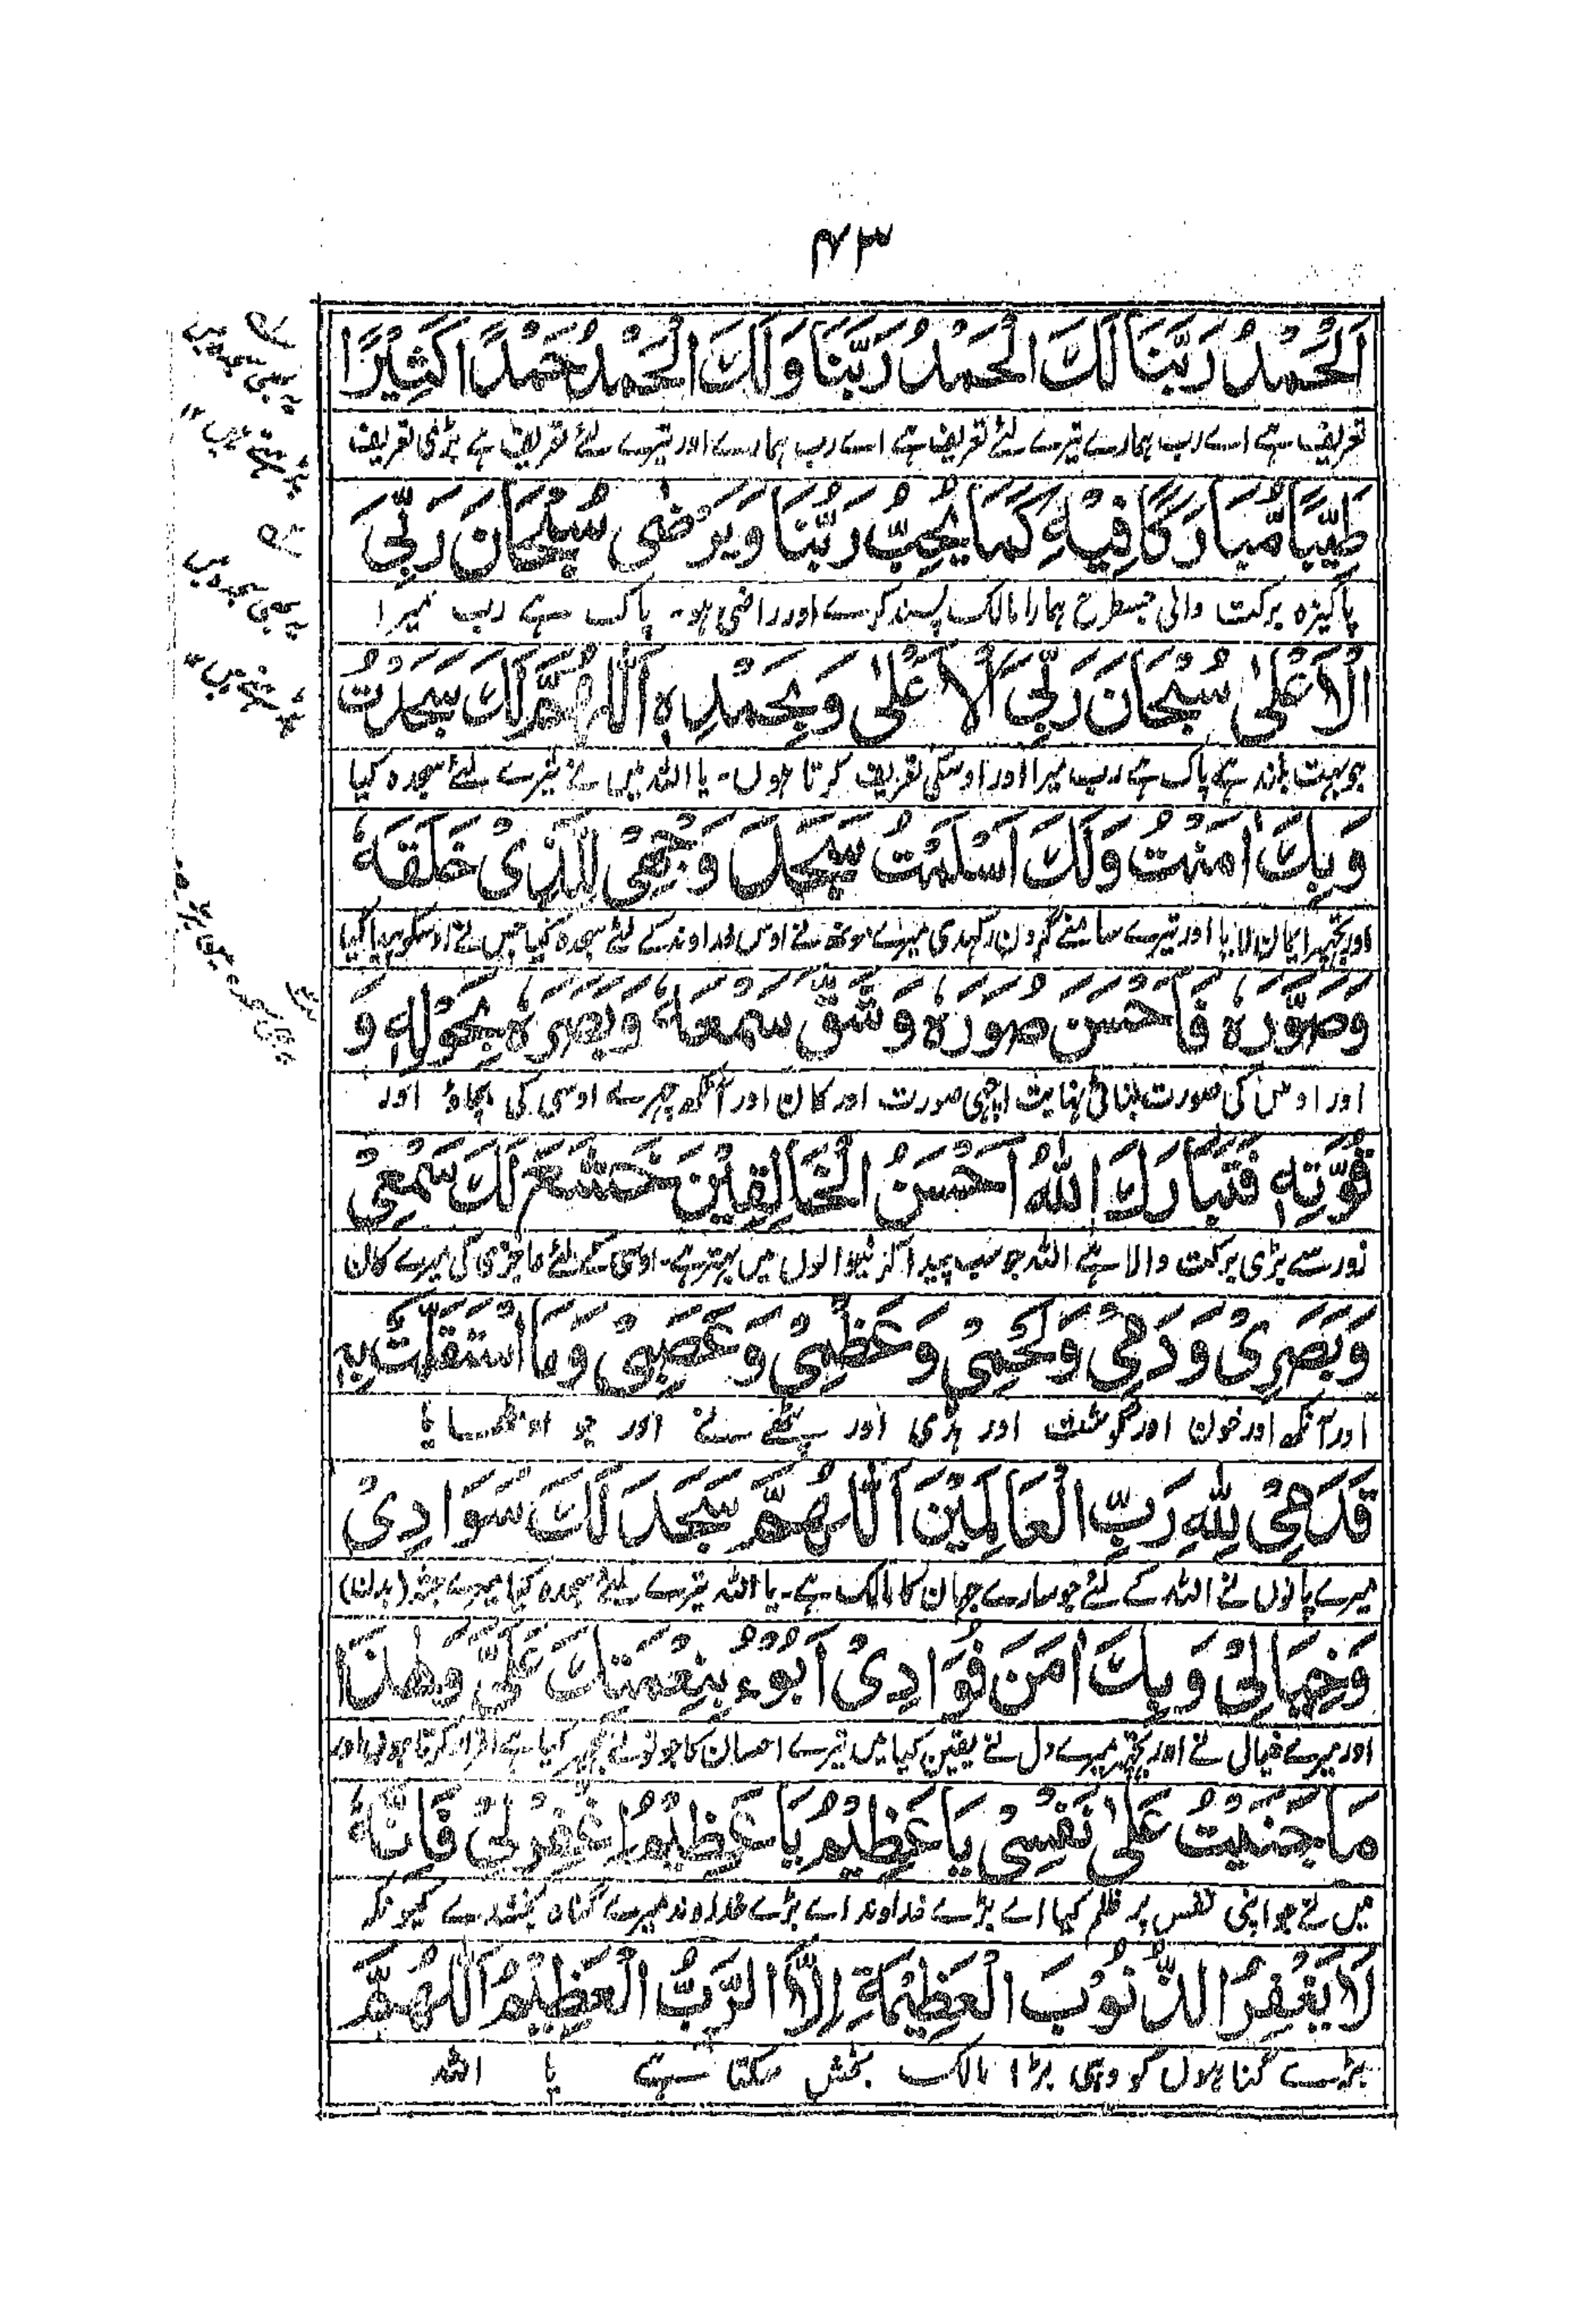 ۴۳
اَلْحَمْدُ رَبَّنَا لَكَ الْحَمْدُ رَبَّنَا وَلَكَ الْحَمْدُ حَمْدًا كَثِيْرًا
تعریف ہے اے رب ہمارے تیرے لئے تعریف ہے اے رب ہمارے اور تیرے لئے تعریف ہے بڑی تعریف
طَيِّبًا مُّبَارَكًا فِيْهِ كَمَا يُحِبُّ رَبُّنَا وَيَرْضٰى سُبْحَانَ رَبِّيَ
پاکیزہ برکت والی جسطرح ہمارا مالک پسند کرے اور راضی ہو۔ پاک ہے رب میرا
الْاَعْلٰى سُبْحَانَ رَبِّيَ الْاَعْلٰى وَبِحَمْدِهٖ اَللّٰهُمَّ لَكَ سَجَدْتُ
جو بہت بلند ہے پاک ہے رب میرا اور اوسکی تعریف کرتا ہوں۔ یا اللہ میں نے تیرے لئے سجدہ کیا
وَبِكَ اٰمَنْتُ وَلَكَ اَسْلَمْتُ سَجَدَ وَجْهِيْ لِلَّذِيْ خَلَقَهٗ
اور تجھپر ایمان لایا اور تیرے سامنے گردن رکھدی میرے مونھ نے اوس خداوند کے لئے سجدہ کیا جس نے اوسکو پیدا کیا
وَصَوَّرَهٗ فَاَحْسَنَ صُوَرَهٗ وَشَقَّ سَمْعَهٗ وَبَصَرَهٗ بِحَوْلِهٖ وَ
اور اوس کی صورت بنائی نہایت اچھی صورت اور کان اور آنکھ چیرے اوسی کی بچاؤ اور
قُوَّتِهٖ فَتَبَارَكَ اللّٰهُ اَحْسَنُ الْخَالِقِيْنَ خَشَعَ لَكَ سَمْعِيْ
زور سے بڑی برکت والا ہے اللہ جو سب پیدا کرنیوالوں میں بہتر ہے۔ اوسی کے لئے عاجزی کی میرے کان
وَبَصَرِيْ وَدَمِيْ وَلَحْمِيْ وَعَظْمِيْ وَعَصَبِيْ وَمَا اسْتَقَلَّتْ بِهٖ
اور آنکھ اور خون اور گوشت اور ہڈی اور پٹھے نے اور جو اوٹھایا
قَدَمِيْ لِلّٰهِ رَبِّ الْعَالَمِيْنَ اَللّٰهُمَّ سَجَدَ لَكَ سَوَادِيْ
میرے پانوں نے اللہ کے لئے جو سارے جہان کا مالک ہے۔ یا اللہ تیرے لئے سجدہ کیا میرے جثہ (بدن)
وَخِيَالِيْ وَبِكَ اٰمَنَ فُوَادِيْ اَبُوْءُ بِنِعْمَتِكَ عَلَيَّ وَهٰذَا
اور میرے خیالی نے اور تجھپر میرے دل نے یقین کیا میں تیرے احسان کا جو تونے مجھپر کیا ہے اقرار کرتا ہوں اور
مَا جَنَيْتُ عَلٰى نَفْسِيْ يَا عَظِيْمُ يَا عَظِيْمُ اِغْفِرْ لِيْ فَاِنَّهٗ
میں نے جو اپنی نفس پر ظلم کیا اے بڑے خداوند اے بڑے خداوند میرے گناہ بخشدے کیونکہ
لَا يَغْفِرُ الذُّنُوْبَ الْعَظِيْمَةِ اِلَّا الرَّبُّ الْعَظِيْمُ اَللّٰهُمَّ
بڑے گناہوں کو وہی بڑا مالک بخش سکتا ہے یا اللہ